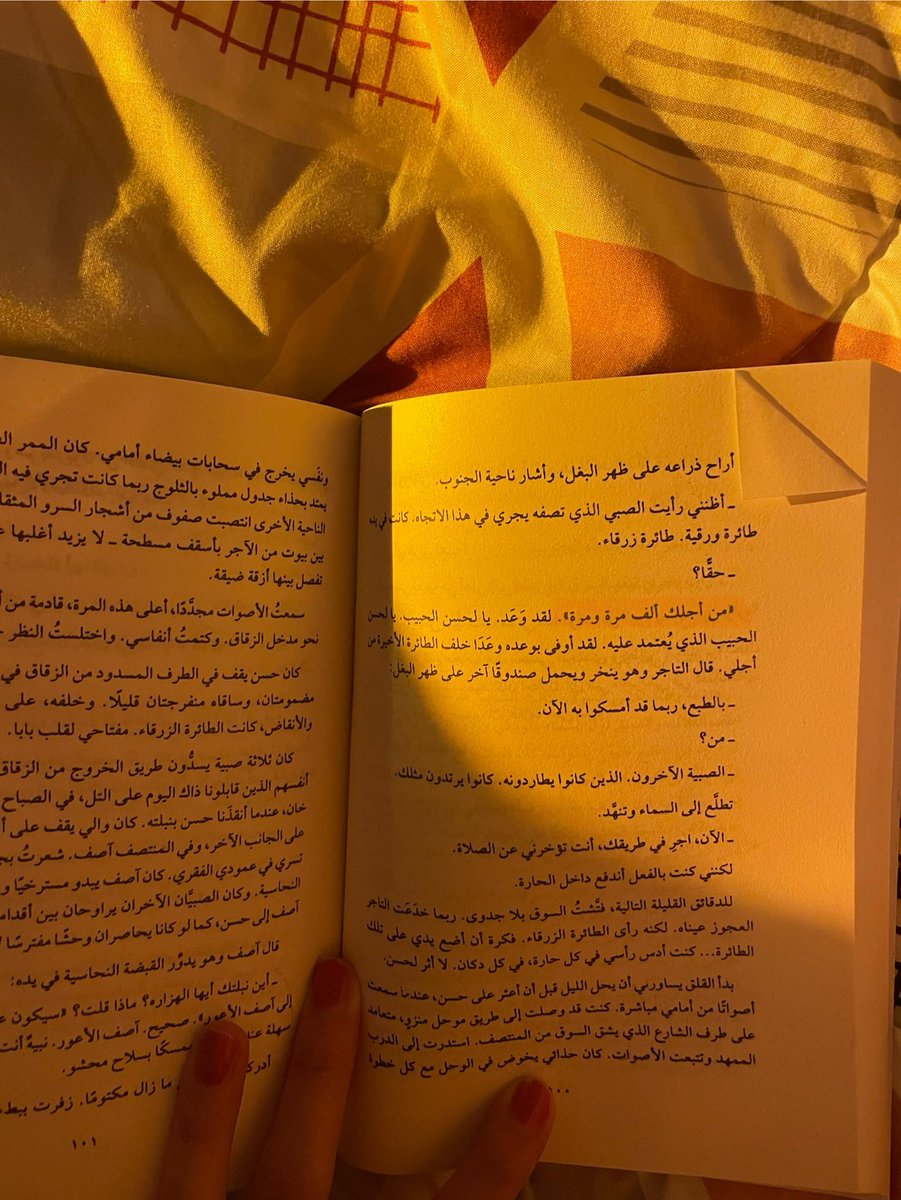 أراح ذراعه على ظهر البغل، وأشار ناحية الجنوب.
ـ أظنني رأيت الصبي الذي تصفه يجري في هذا الاتجاه. كانت في يده
طائرة ورقية. طائرة زرقاء.
ـ حقًّا؟
«من أجلك ألف مرة ومرة». لقد وَعَد. يا لحسن الحبيب. يا لحسن
الحبيب الذي يُعتمد عليه. لقد أوفى بوعده وعَدَا خلف الطائرة الأخيرة من
أجلي. قال التاجر وهو ينخر ويحمل صندوقًا آخر على ظهر البغل:
ـ بالطبع، ربما قد أمسكوا به الآن.
ـ من؟
ـ الصبية الآخرون. الذين كانوا يطاردونه. كانوا يرتدون مثلك.
تطلَّع إلى السماء وتنهَّد.
ـ الآن، اجرِ في طريقك، أنت تؤخرني عن الصلاة.
لكنني كنت بالفعل أندفع داخل الحارة.
للدقائق القليلة التالية، فتَّشتُ السوق بلا جدوى. ربما خدَعَت التاجر
العجوز عيناه. لكنه رأى الطائرة الزرقاء. فكرة أن أضع يدي على تلك
الطائرة... كنت أدس رأسي في كل حارة، في كل دكان. لا أثر لحسن.
بدأ القلق يساورني أن يحل الليل قبل أن أعثر على حسن، عندما سمعت
أصواتًا من أمامي مباشرة. كنت قد وصلت إلى طريق موحل منزوٍ، متعامد
على طرف الشارع الذي يشق السوق من المنتصف. استدرت إلى الدرب
الممهد وتتبعت الأصوات. كان حذائي يخوض في الوحل مع كل خطوة
ونفَسي يخرج في سحابات بيضاء أمامي. كان الممر
يمتد بحذاء جدول مملوء بالثلوج ربما كانت تجري فيه
الناحية الأخرى انتصبت صفوف من أشجار السرو
بين بيوت من الآجر بأسقف مسطحة ـ لا يزيد أغلبها
تفصل بينها أزقة ضيقة.
سمعتُ الأصوات مجدَّدًا، أعلى هذه المرة، قادمة من
نحو مدخل الزقاق. وكتمتُ أنفاسي. واختلستُ النظر
كان حسن يقف في الطرف المسدود من الزقاق في
مضمومتان، وساقاه منفرجتان قليلًا. وخلفه، على
والأنقاض، كانت الطائرة الزرقاء. مفتاحي لقلب بابا.
كان ثلاثة صبية يسدُّون طريق الخروج من الزقاق
أنفسهم الذين قابلونا ذاك اليوم على التل، في الصباح
خان، عندما أنقذَنا حسن بنبلته. كان والي يقف على
على الجانب الآخر، وفي المنتصف آصف. شعرتُ
تسري في عمودي الفقري. كان آصف يبدو مسترخيًا
النحاسية. وكان الصبيَّان الآخران يراوحان بين
آصف إلى حسن، كما لو كانا يحاصران وحشًا مفترسًا
قال آصف وهو يدوِّر القبضة النحاسية في يده:
ـ أين نبلتك أيها الهزاره؟ ماذا قلت؟ «سيكون
إلى آصف الأعور». صحيح. آصف الأعور. نبيهٌ أنت
سهلة بسلاح محشو.
ما زال مكتومًا. زفرت
١٠١